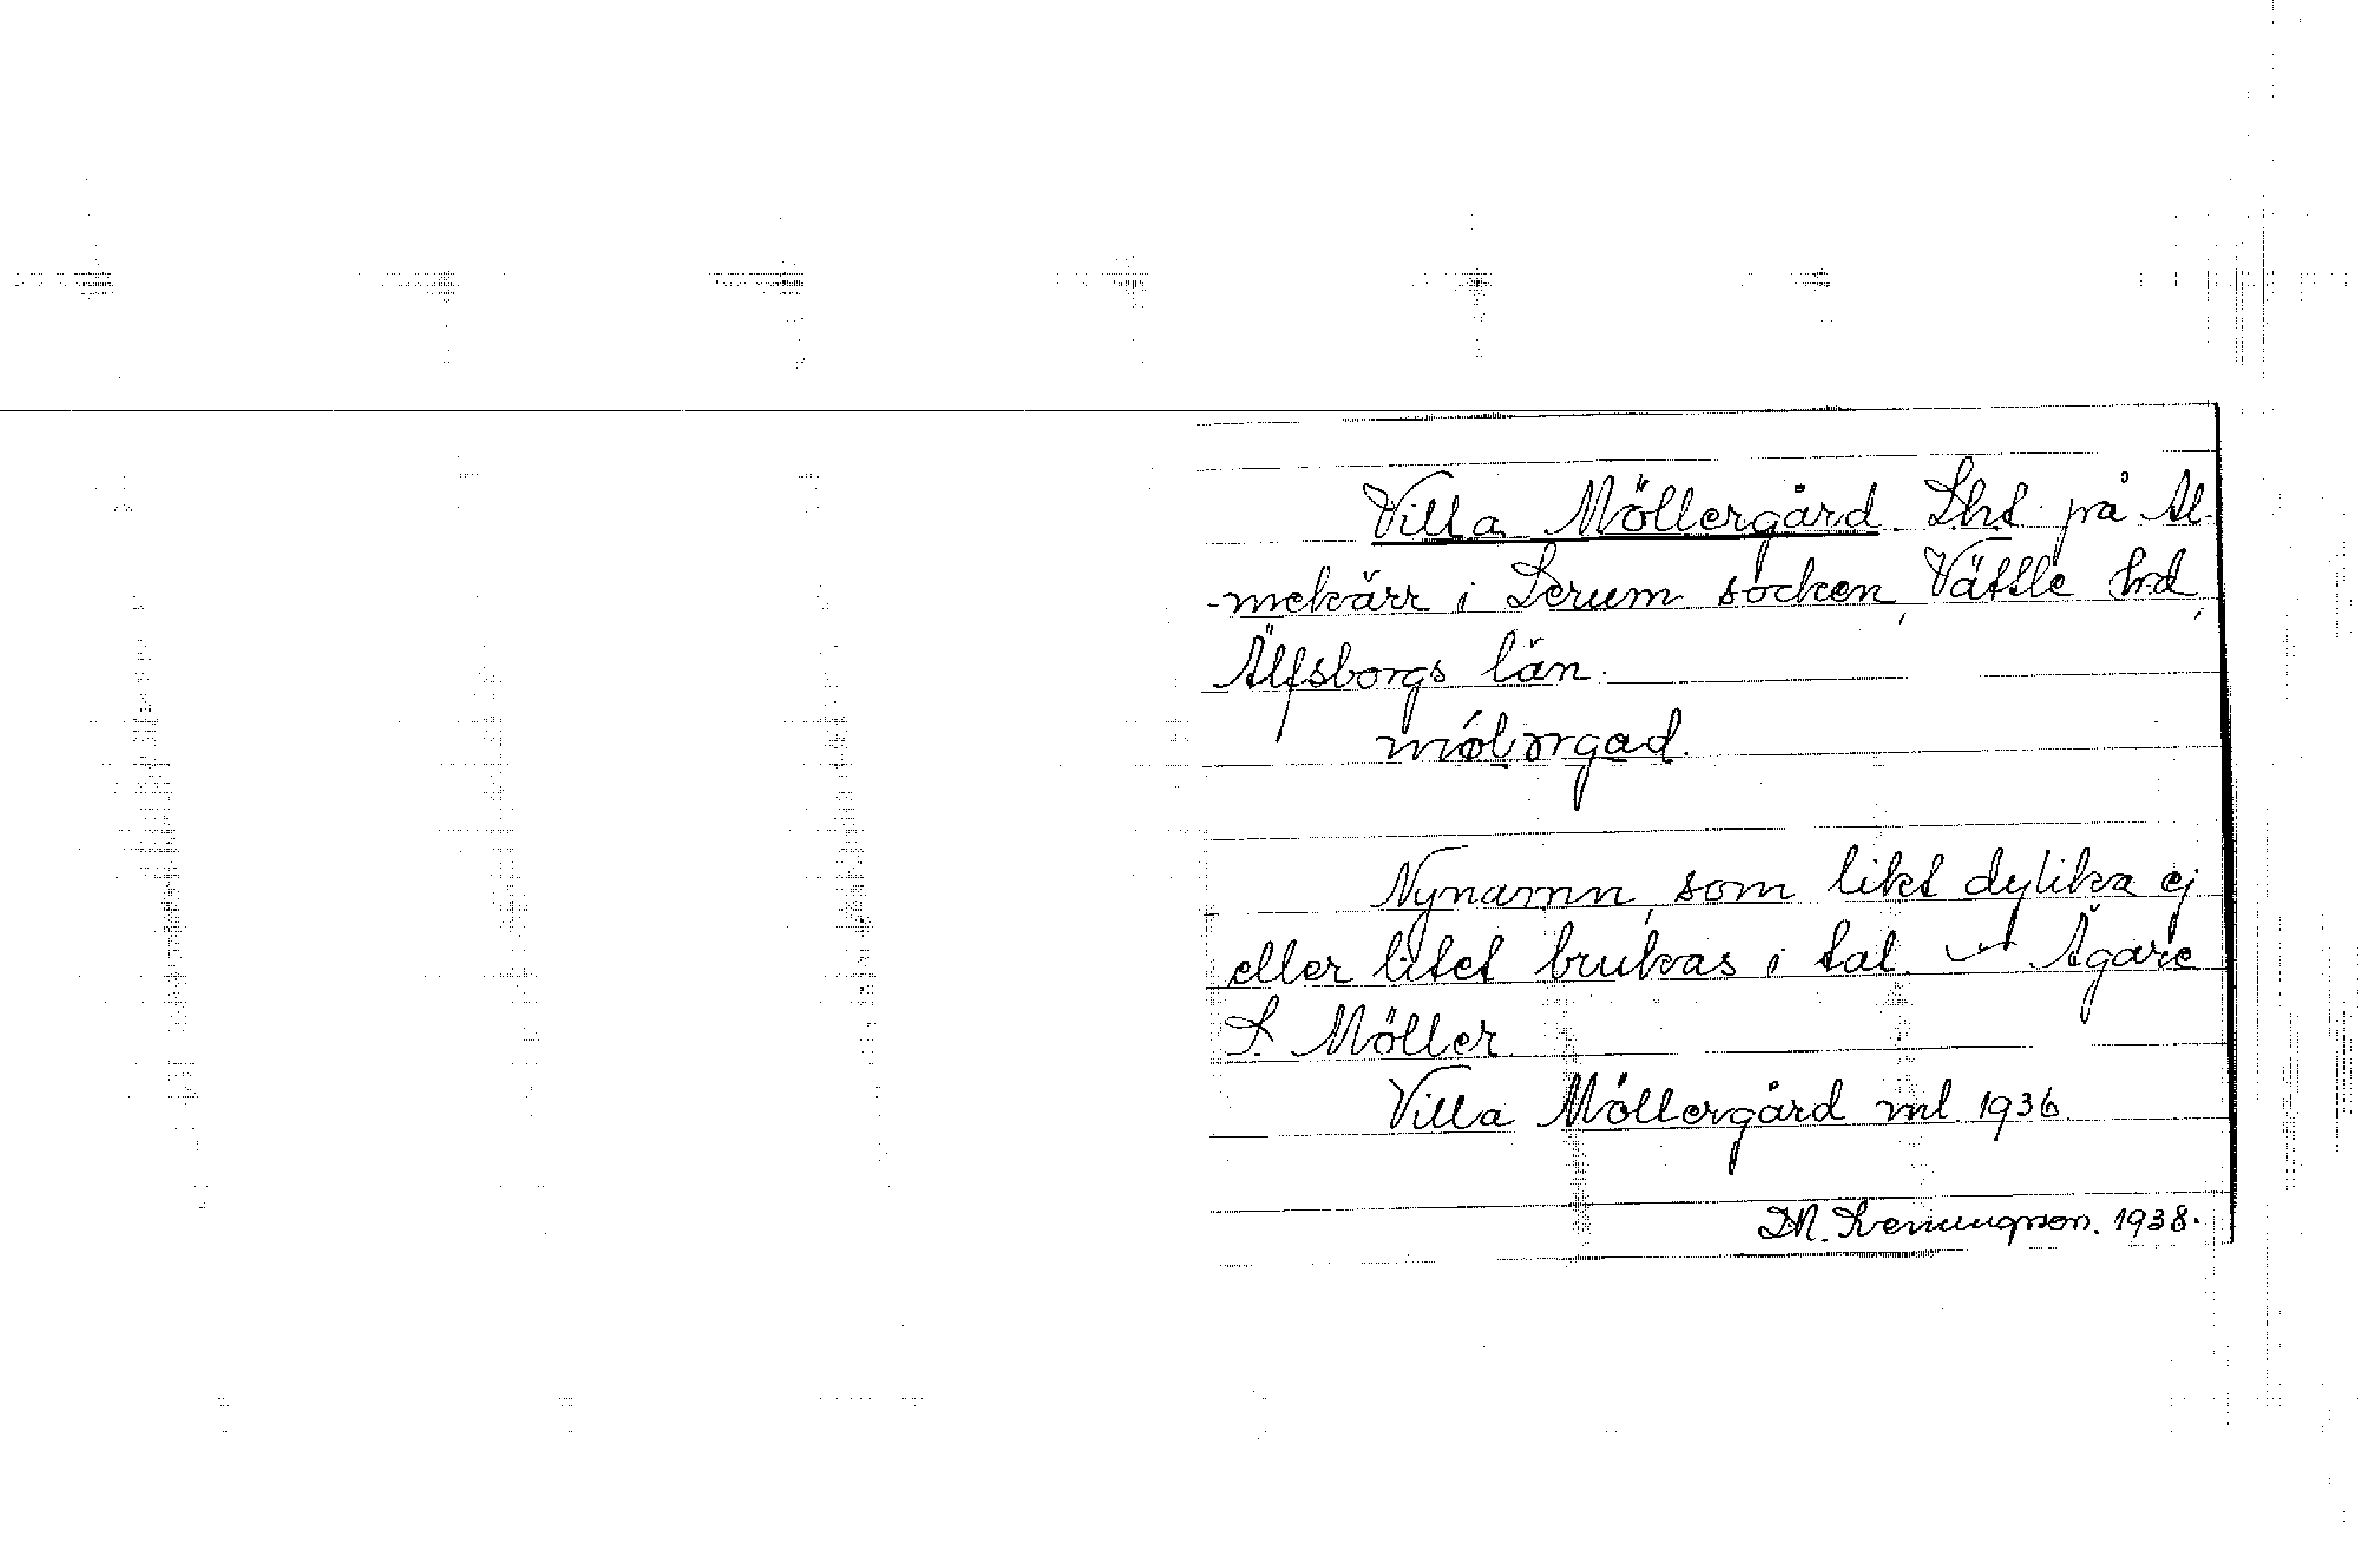 Villa Möllergård Lht på Al-
-mekärr i Lerum socken, Vättle hd,
Älfsborgs län.
Nynamn, som likt dylika ej
eller litet brukas i tal. Ägare
L. Möller.
Villa Möllergård ml 1936.
1938.